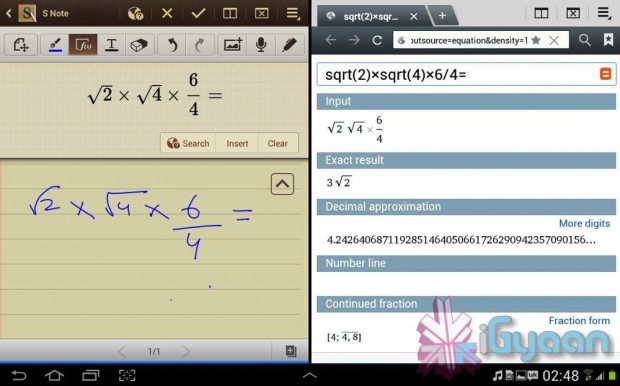 S Note
√2 × √4 × 6/4 =
Search Insert Clear
√2 × √4 × 6/4 =
1/1
sqrt(2)×sqr...
outsource=equation&density=1
sqrt(2)×sqrt(4)×6/4=
Input
√2 √4 × 6/4
Exact result
3√2
Decimal approximation
More digits
4.2426406871192851464050661726290942357090156...
Number line
Continued fraction
Fraction form
[4; 4, 8]
iGyaan
02:48